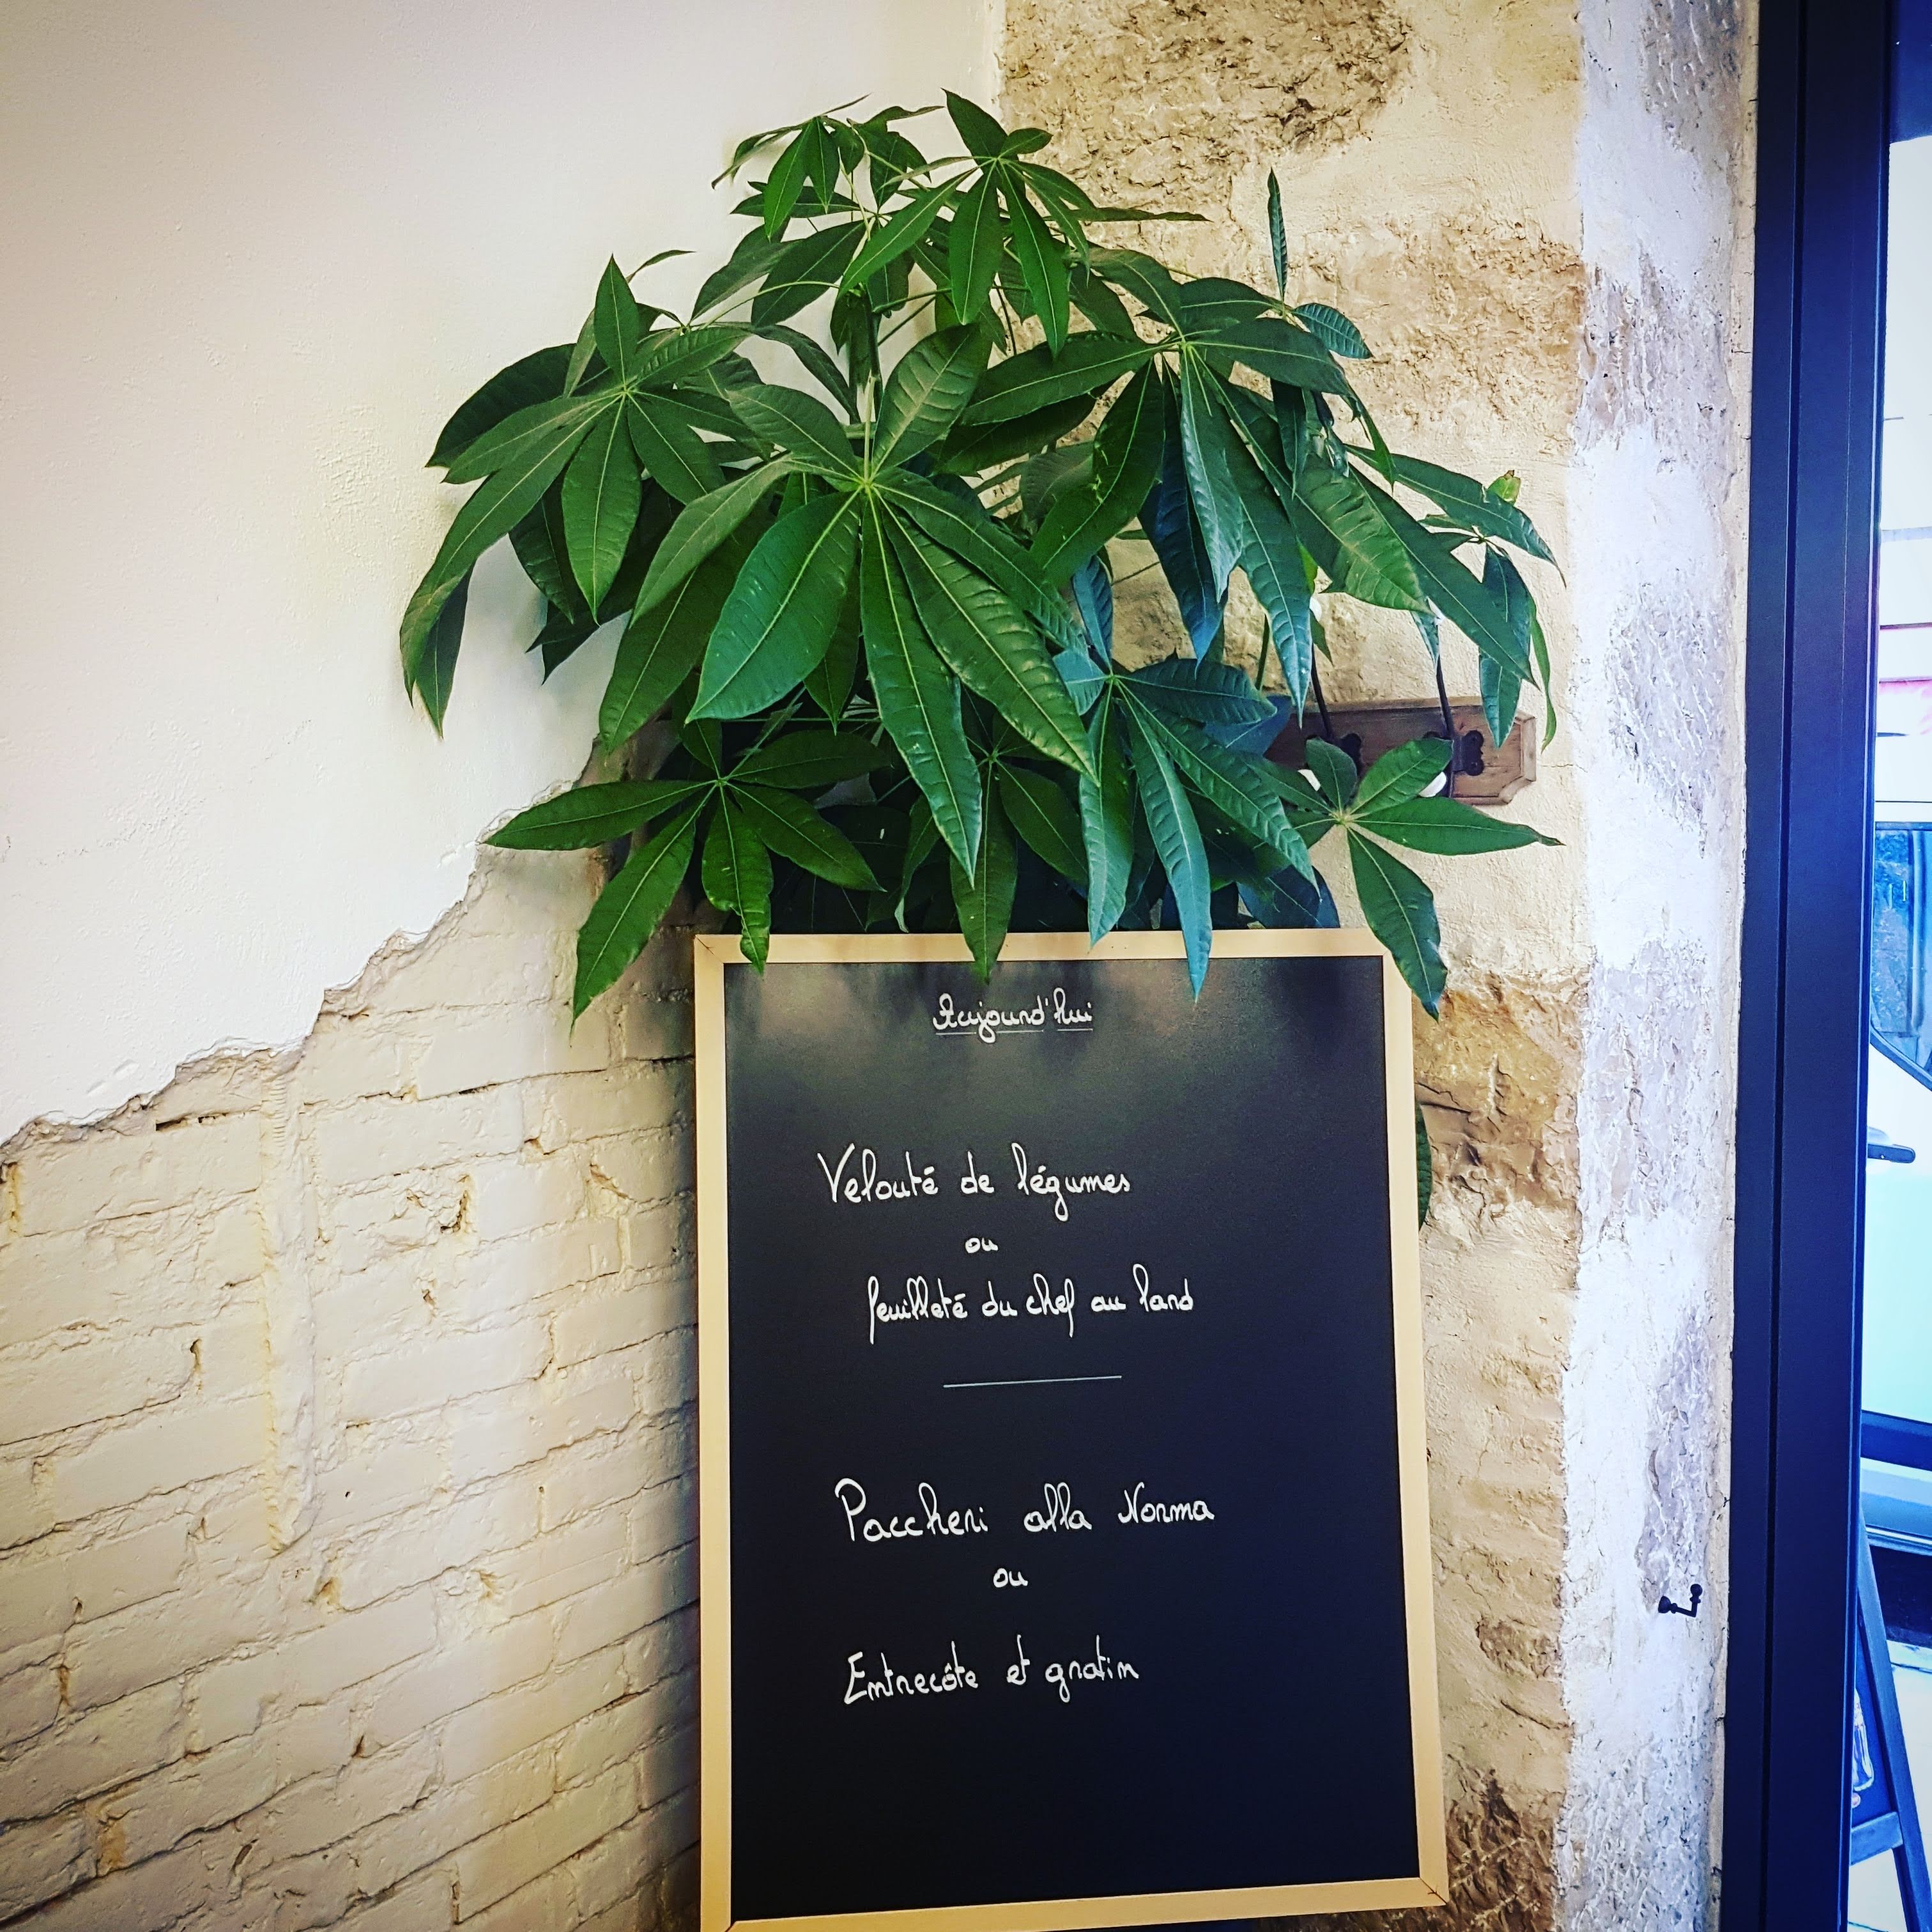 Aujourd'hui
Velouté de légumes
ou
feuilleté du chef au lard
Paccheri alla Norma
ou
Entrecôte et gratin